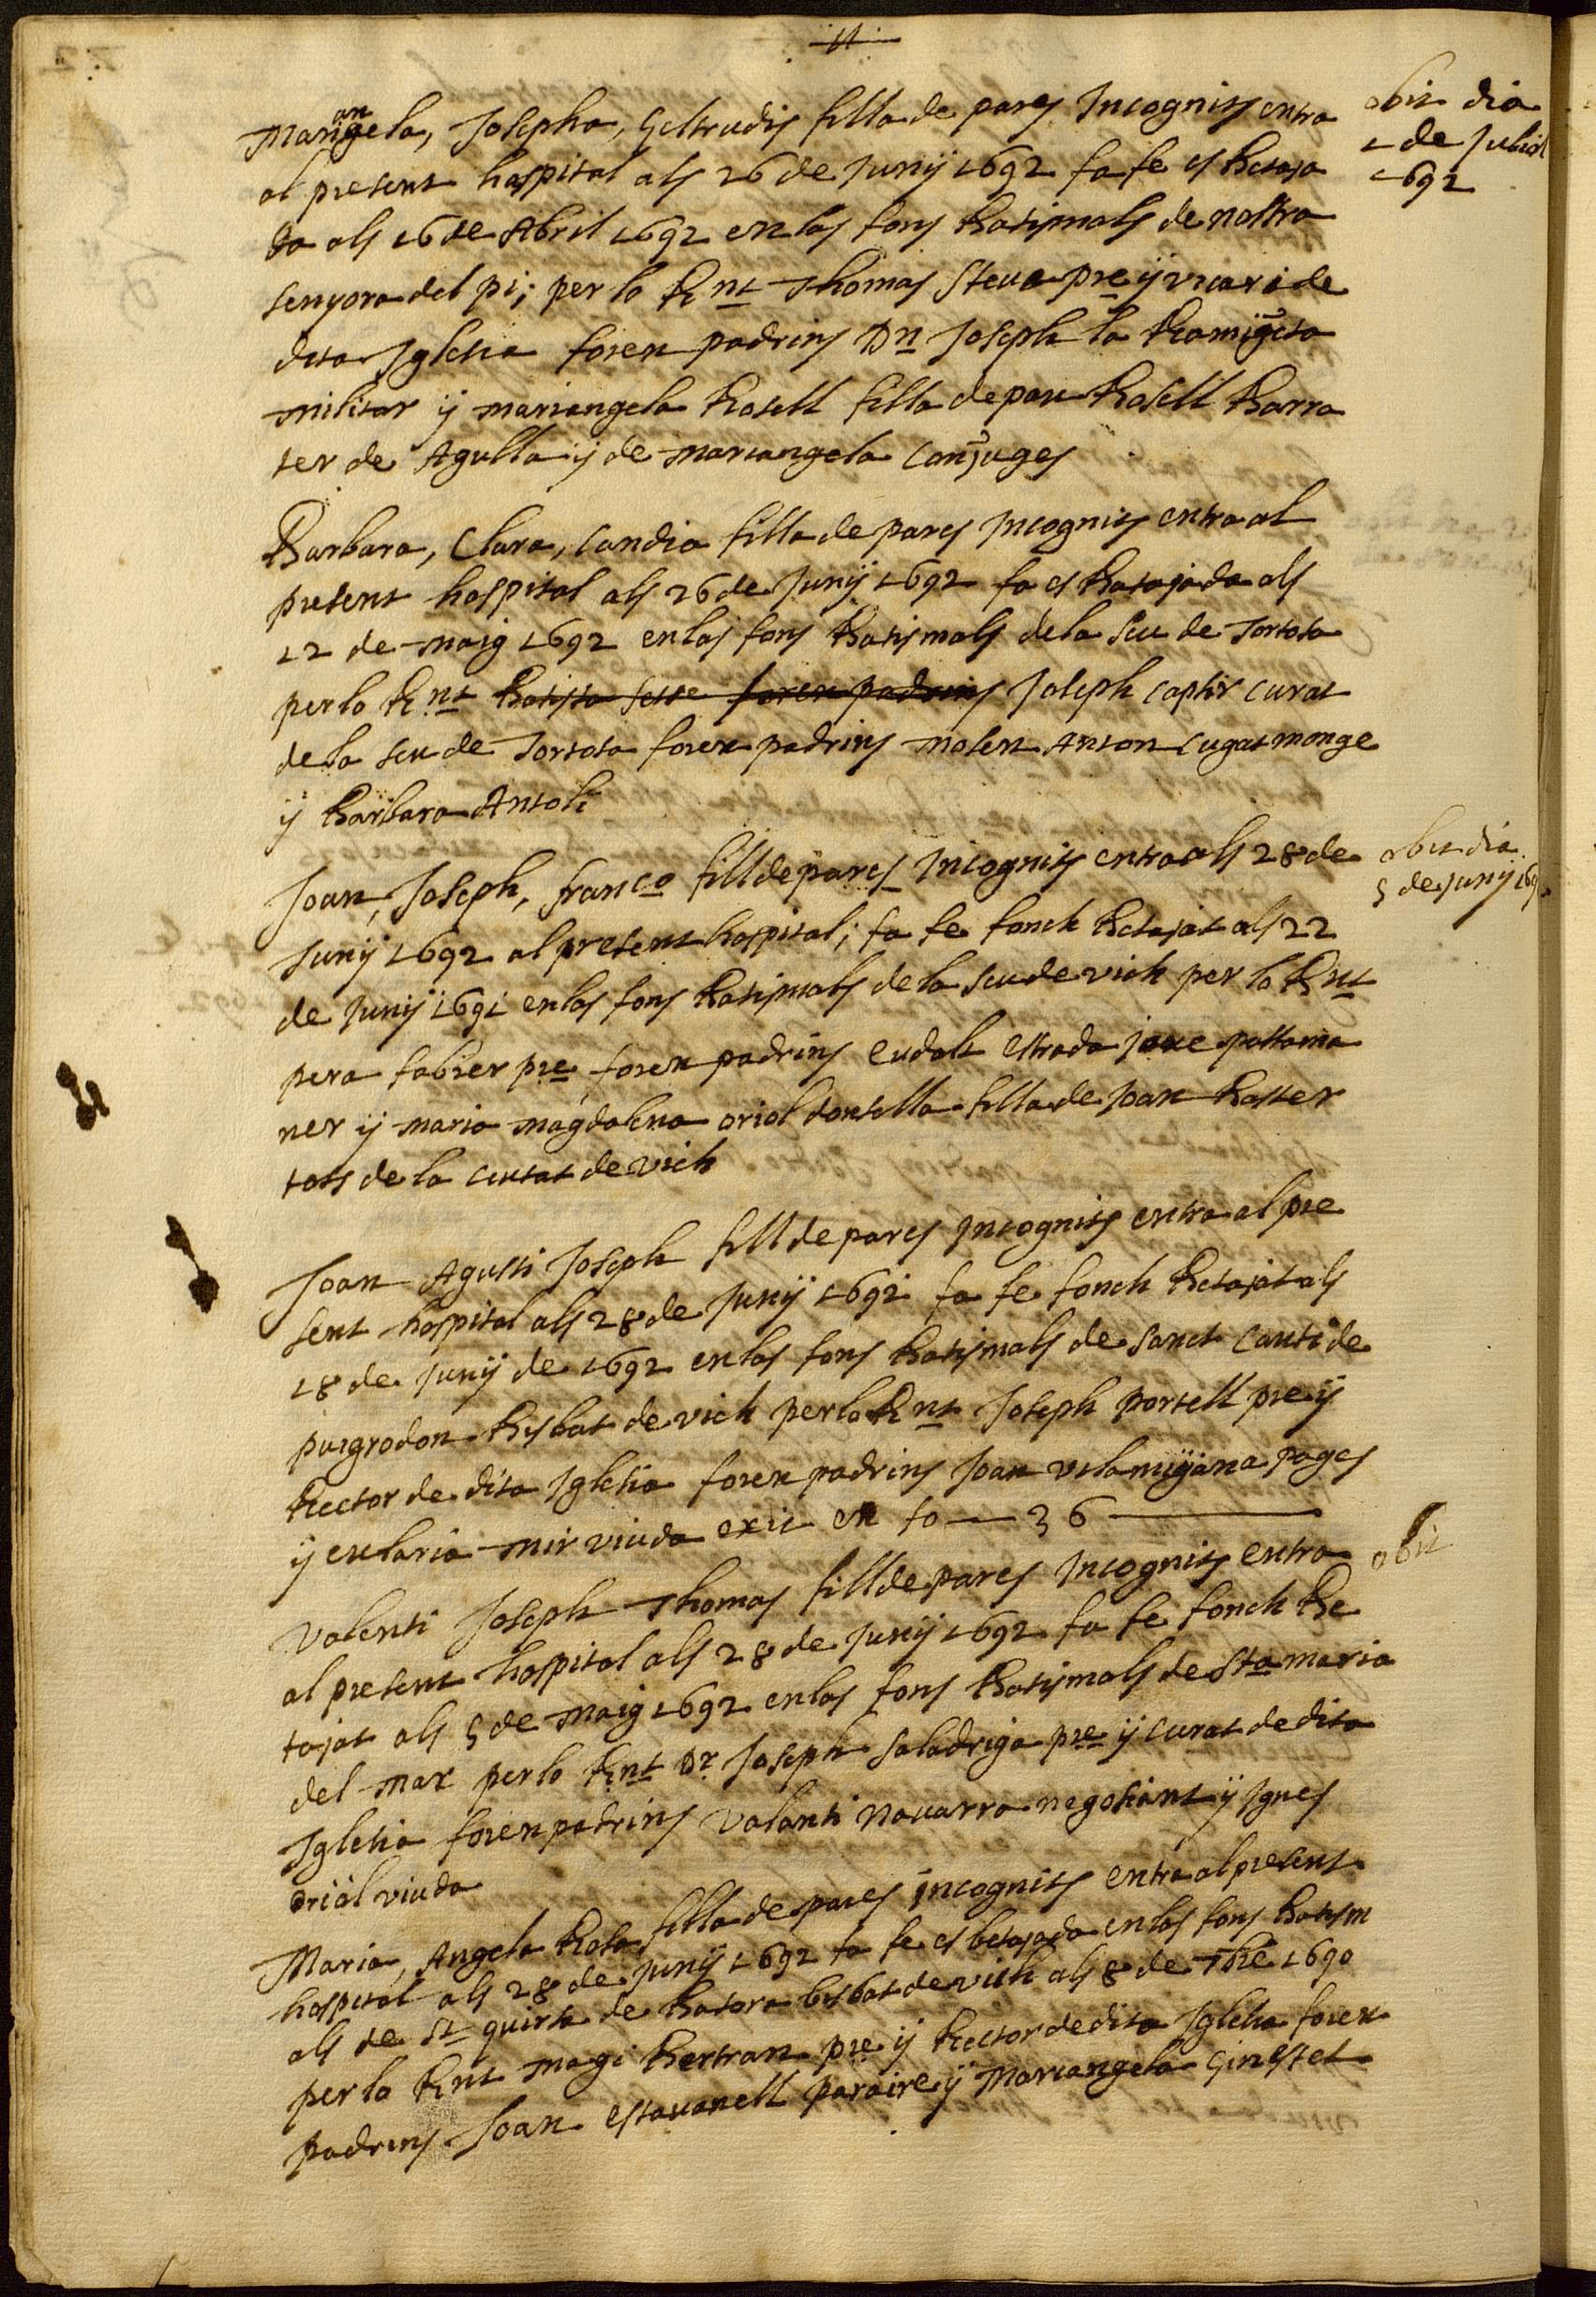 Mariangela, Josepha, Geltrudis filla de pares Incognits entra
al present hospital als 26 de Juny 1692 fa fe es Betaja
da als 16 de Abril 1692 en las fons Batismals de nostra
senyora del pi; per lo Rnt Thomas Steua pre y vicari de
dita Iglesia foren padrins Dn Joseph la
militar y mariangela Rosell filla de pau Rosell Barra
ter de Agulla y de mariangela Conjuges
obit dia
1 de Juliol
1692
Barbara, Clara, Candia filla de pares Incognits entra al
present hospital als 26 de Juny 1692 fa es Batajada als
12 de maig 1692 en las fons Batismals de la Seu de Tortosa
per lo Rnt Batista foren padrins Joseph curat
de la seu de Tortosa foren padrins mosen Anton Cugat monge
y Barbara Antoli
Joan, Joseph, Franco fill de pares Incognits entra als 28 de
Juny 1692 al present hospital; fa fe fonch Betajat als 22
de Juny 1691 en las fons Batismals de la seu de vich per lo Rnt
pera fabrer pre foren padrins eudalt estrada jove passama
ner y maria magdalena oriol donsella filla de Joan Baster
tots de la ciutat de Vich
obit dia
5 de Juny 169
Joan Agusti Joseph fill de pares Incognits entra al pre
sent hospital als 28 de Juny 1692 fa fe fonch Betajat als
18 de Juny de 1692 en las fons Batismals de Sanct de
Bisbat de vich per lo Rnt Joseph portell pre y
Rector de dita Iglesia foren padrins Joan vilamijana pages
y eularia mir viuda exit en fo — 36 —
Valenti Joseph Thomas fill de pares Incognits entra
al present hospital als 28 de Juny 1692 fa fe fonch Be
tajat als 5 de maig 1692 en las fons Batismals de Sta maria
del mar per lo Rnt Dr Joseph Saladriga pre y curat de dita
Iglesia foren padrins Valanti Navarro negosiant y Ignes
Oriol viuda
obit
Maria, Angela Rosa filla de pares incognits entra al present
hospital als 28 de Juny 1692 fa fe es betajada en las fons Batism
als de St quirse de Basora bisbat de vich als 8 de 7bre 1690
per lo Rnt magi Bertran pre y Rector de dita Iglesia foren
padrins Joan estavanell paraire y Mariangela Ginestet